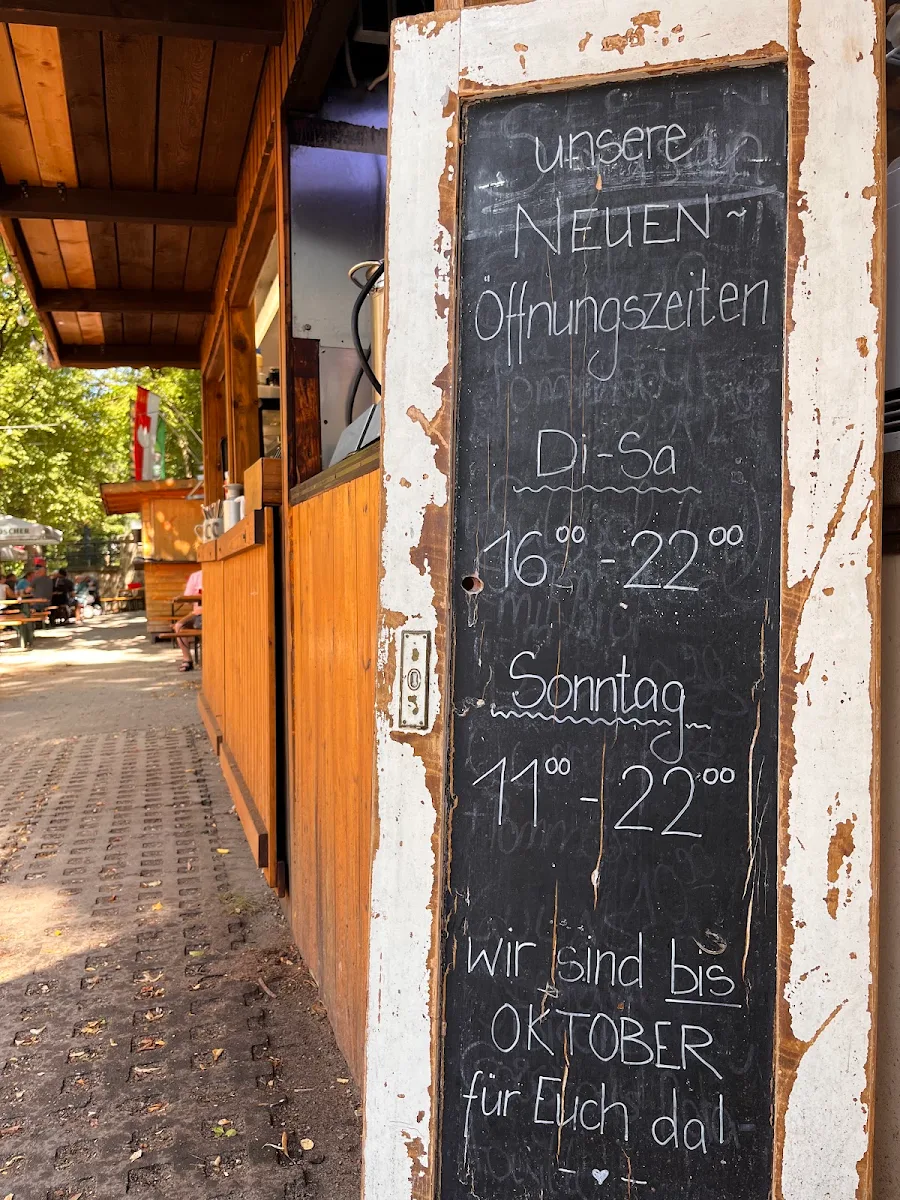 unsere
NEUEN ~
Öffnungszeiten
Di-Sa
16⁰⁰ - 22⁰⁰
Sonntag
11⁰⁰ - 22⁰⁰
wir sind bis
OKTOBER
für Euch da!